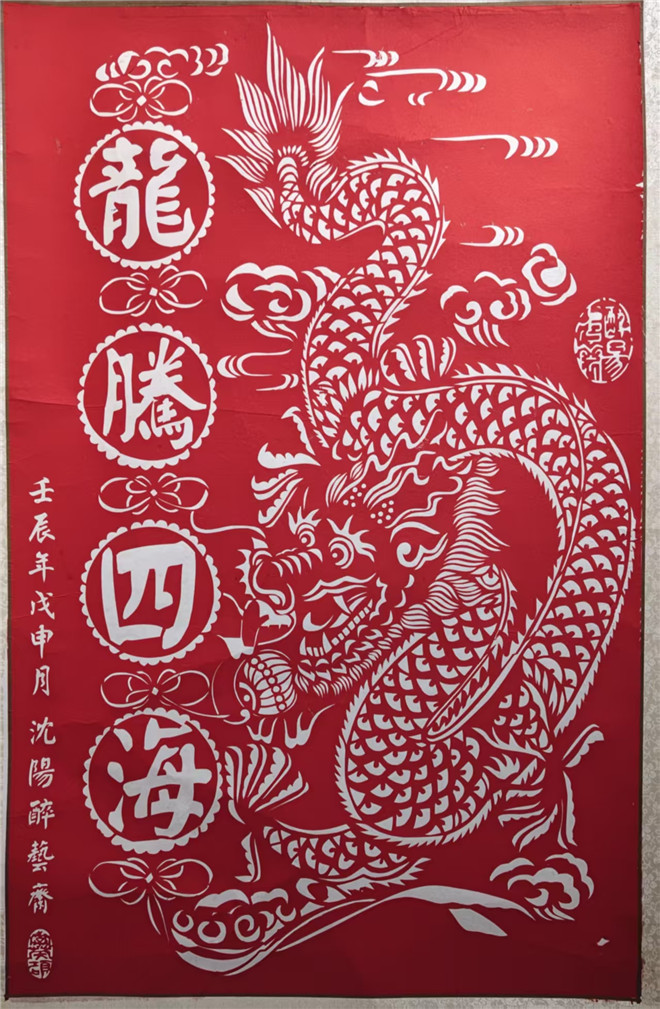 龍騰四海
壬辰年戊申月沈陽醉藝齋